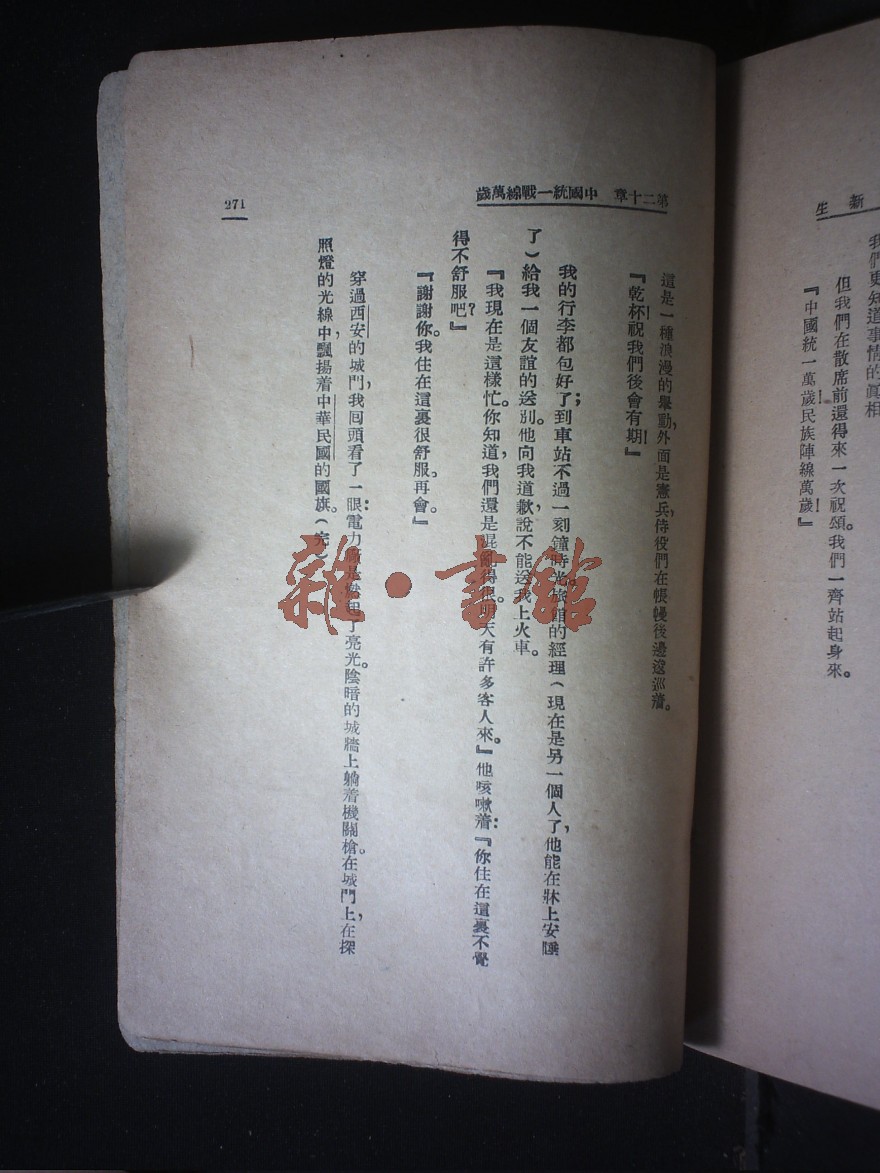 新生
我們更知道事情的眞相
但我們在散席前還得來一次祝頌。我們一齊站起身來。
『中國統一萬歲！民族陣線萬歲！』
第二十章 中國統一戰線萬歲
271
這是一種浪漫的舉動，外面是憲兵，侍役們在帳幔後邊逡巡着。
『乾杯！祝我們後會有期！』
我的行李都包好了；到車站不過一刻鐘時光。旅館的經理（現在是另一個人了，他能在牀上安睡
了）給我一個友誼的送別。他向我道歉，說不能送我上火車。
『我現在是這樣忙。你知道，我們還是混亂得很。明天有許多客人來。』他咳嗽着：『你住在這裏不覺
得不舒服吧？』
『謝謝你。我住在這裏很舒服。再會。』
穿過西安的城門，我囘頭看了一眼：電力 亮光。陰暗的城牆上躺着機關槍。在城門上，在探
照燈的光線中，飄揚着中華民國的國旗。（完）
雜·書館